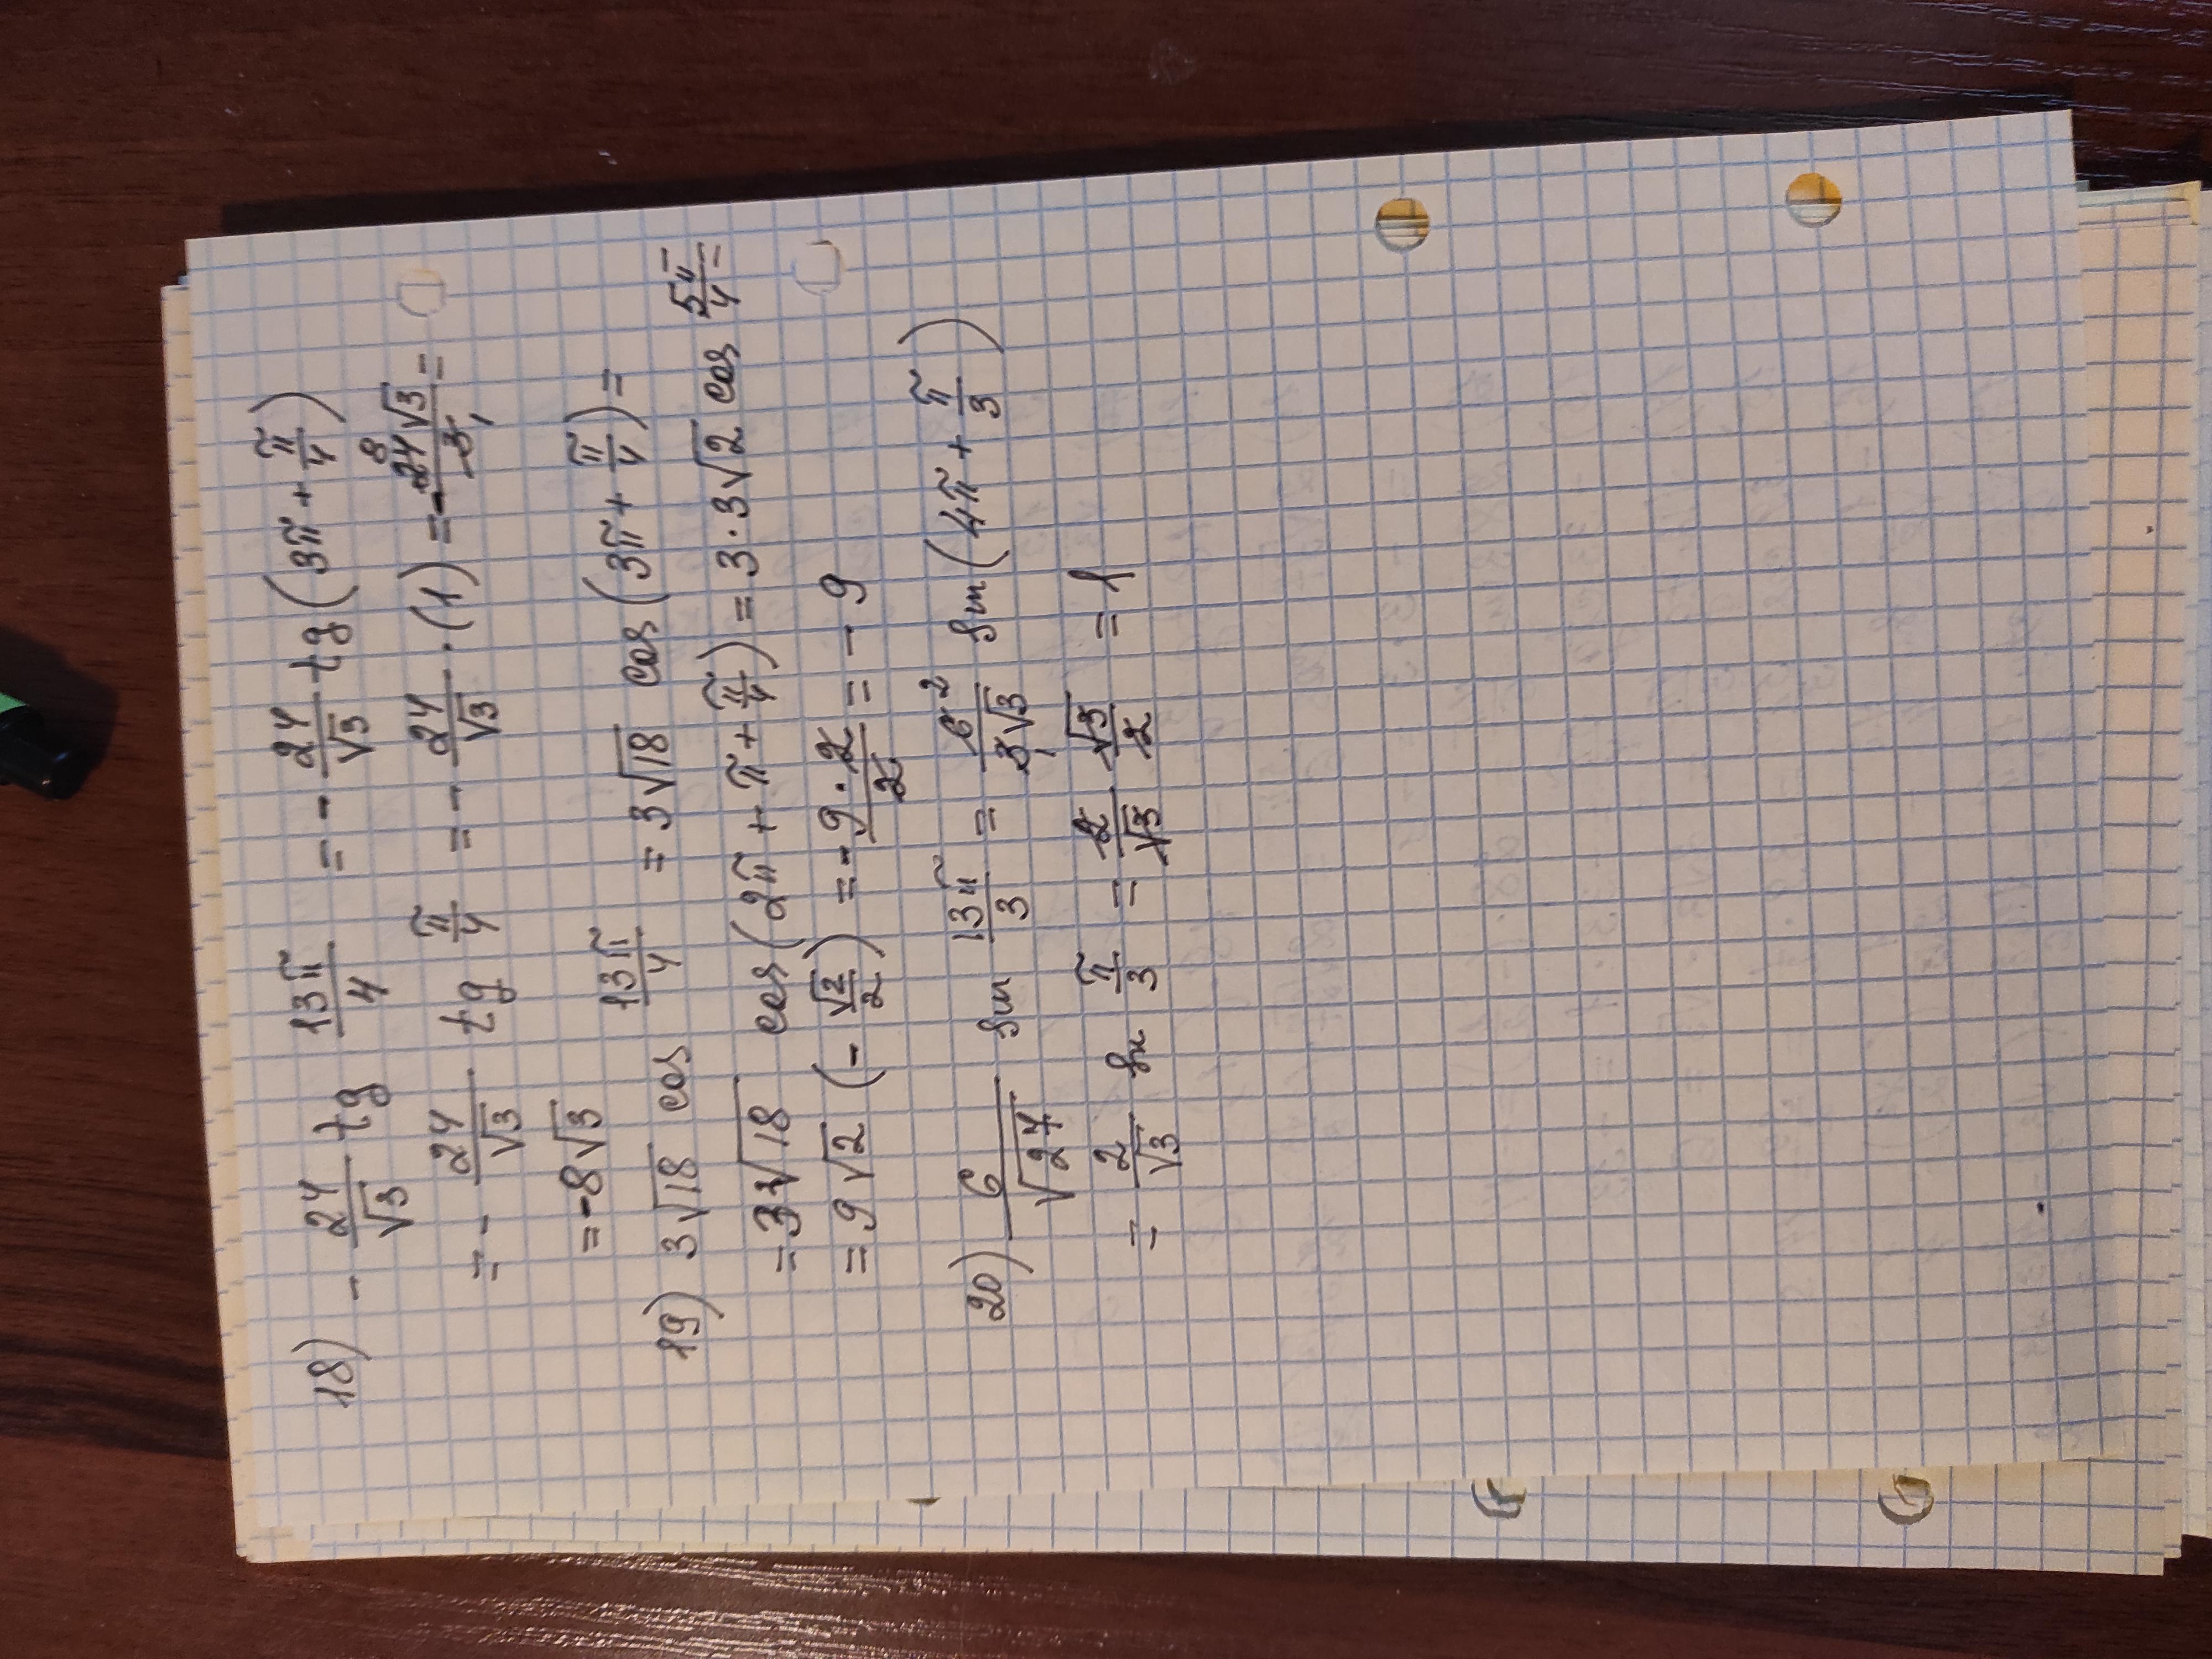 18) - 24/√3 tg 13π/4 = - 24/√3 tg (3π + π/4)
= - 24/√3 tg π/4 = - 24/√3 · (1) = - 24√3/3 = 8 1
= -8√3
19) 3√18 cos 13π/4 = 3√18 cos (3π + π/4) =
= 3√18 cos (2π + π + π/4) = 3·3√2 cos 5π/4 =
= 9√2 (- √2/2) = - 9·2/2 = - 9
20) 6/√27 sin 13π/3 = 6 2/3√3 1 sin (4π + π/3)
= 2/√3 sin π/3 = 2/√3 √3/2 = 1